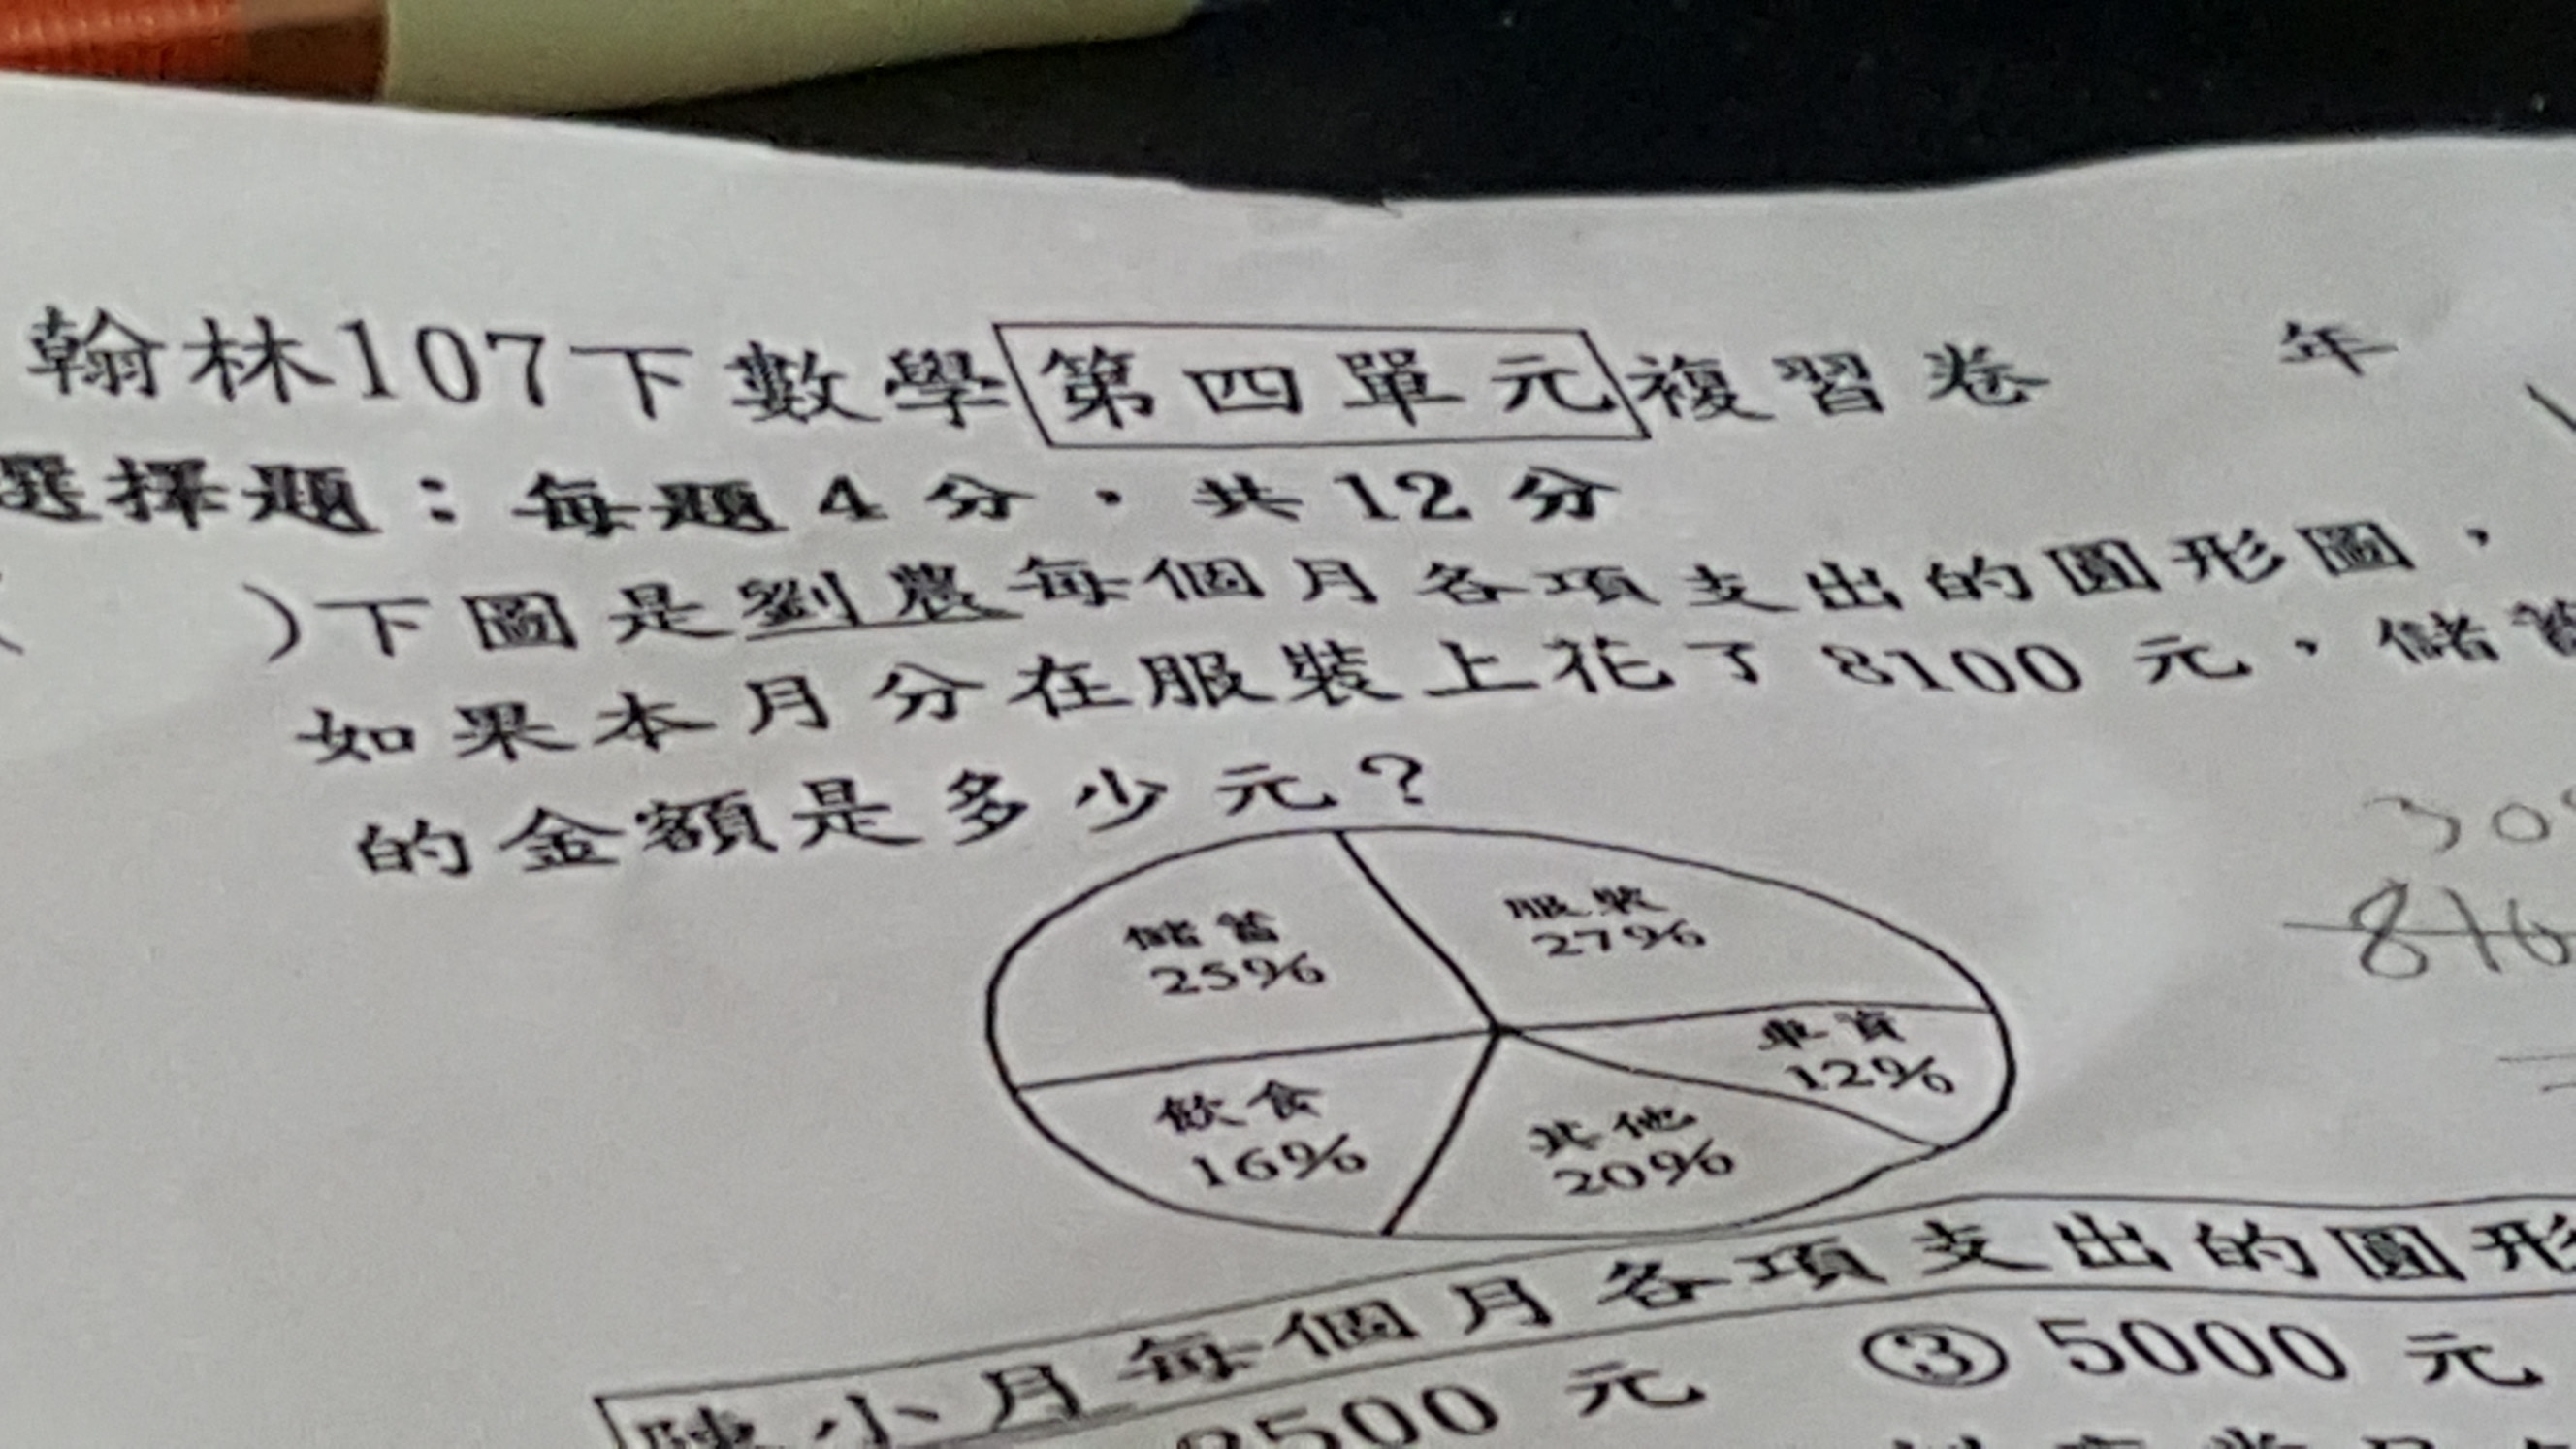 翰林107下數學第四單元複習卷 年
選擇題：每題4分，共12分
)下圖是劉農每個月各項支出的圓形圖，
如果本月分在服裝上花了8100元，儲蓄
的金額是多少元？
儲蓄
25%
服裝
27%
車資
12%
飲食
16%
其他
20%
陳小月每個月各項支出的圓形
500元 ③5000元